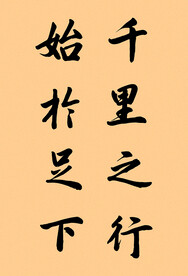 千里之行
始於足下